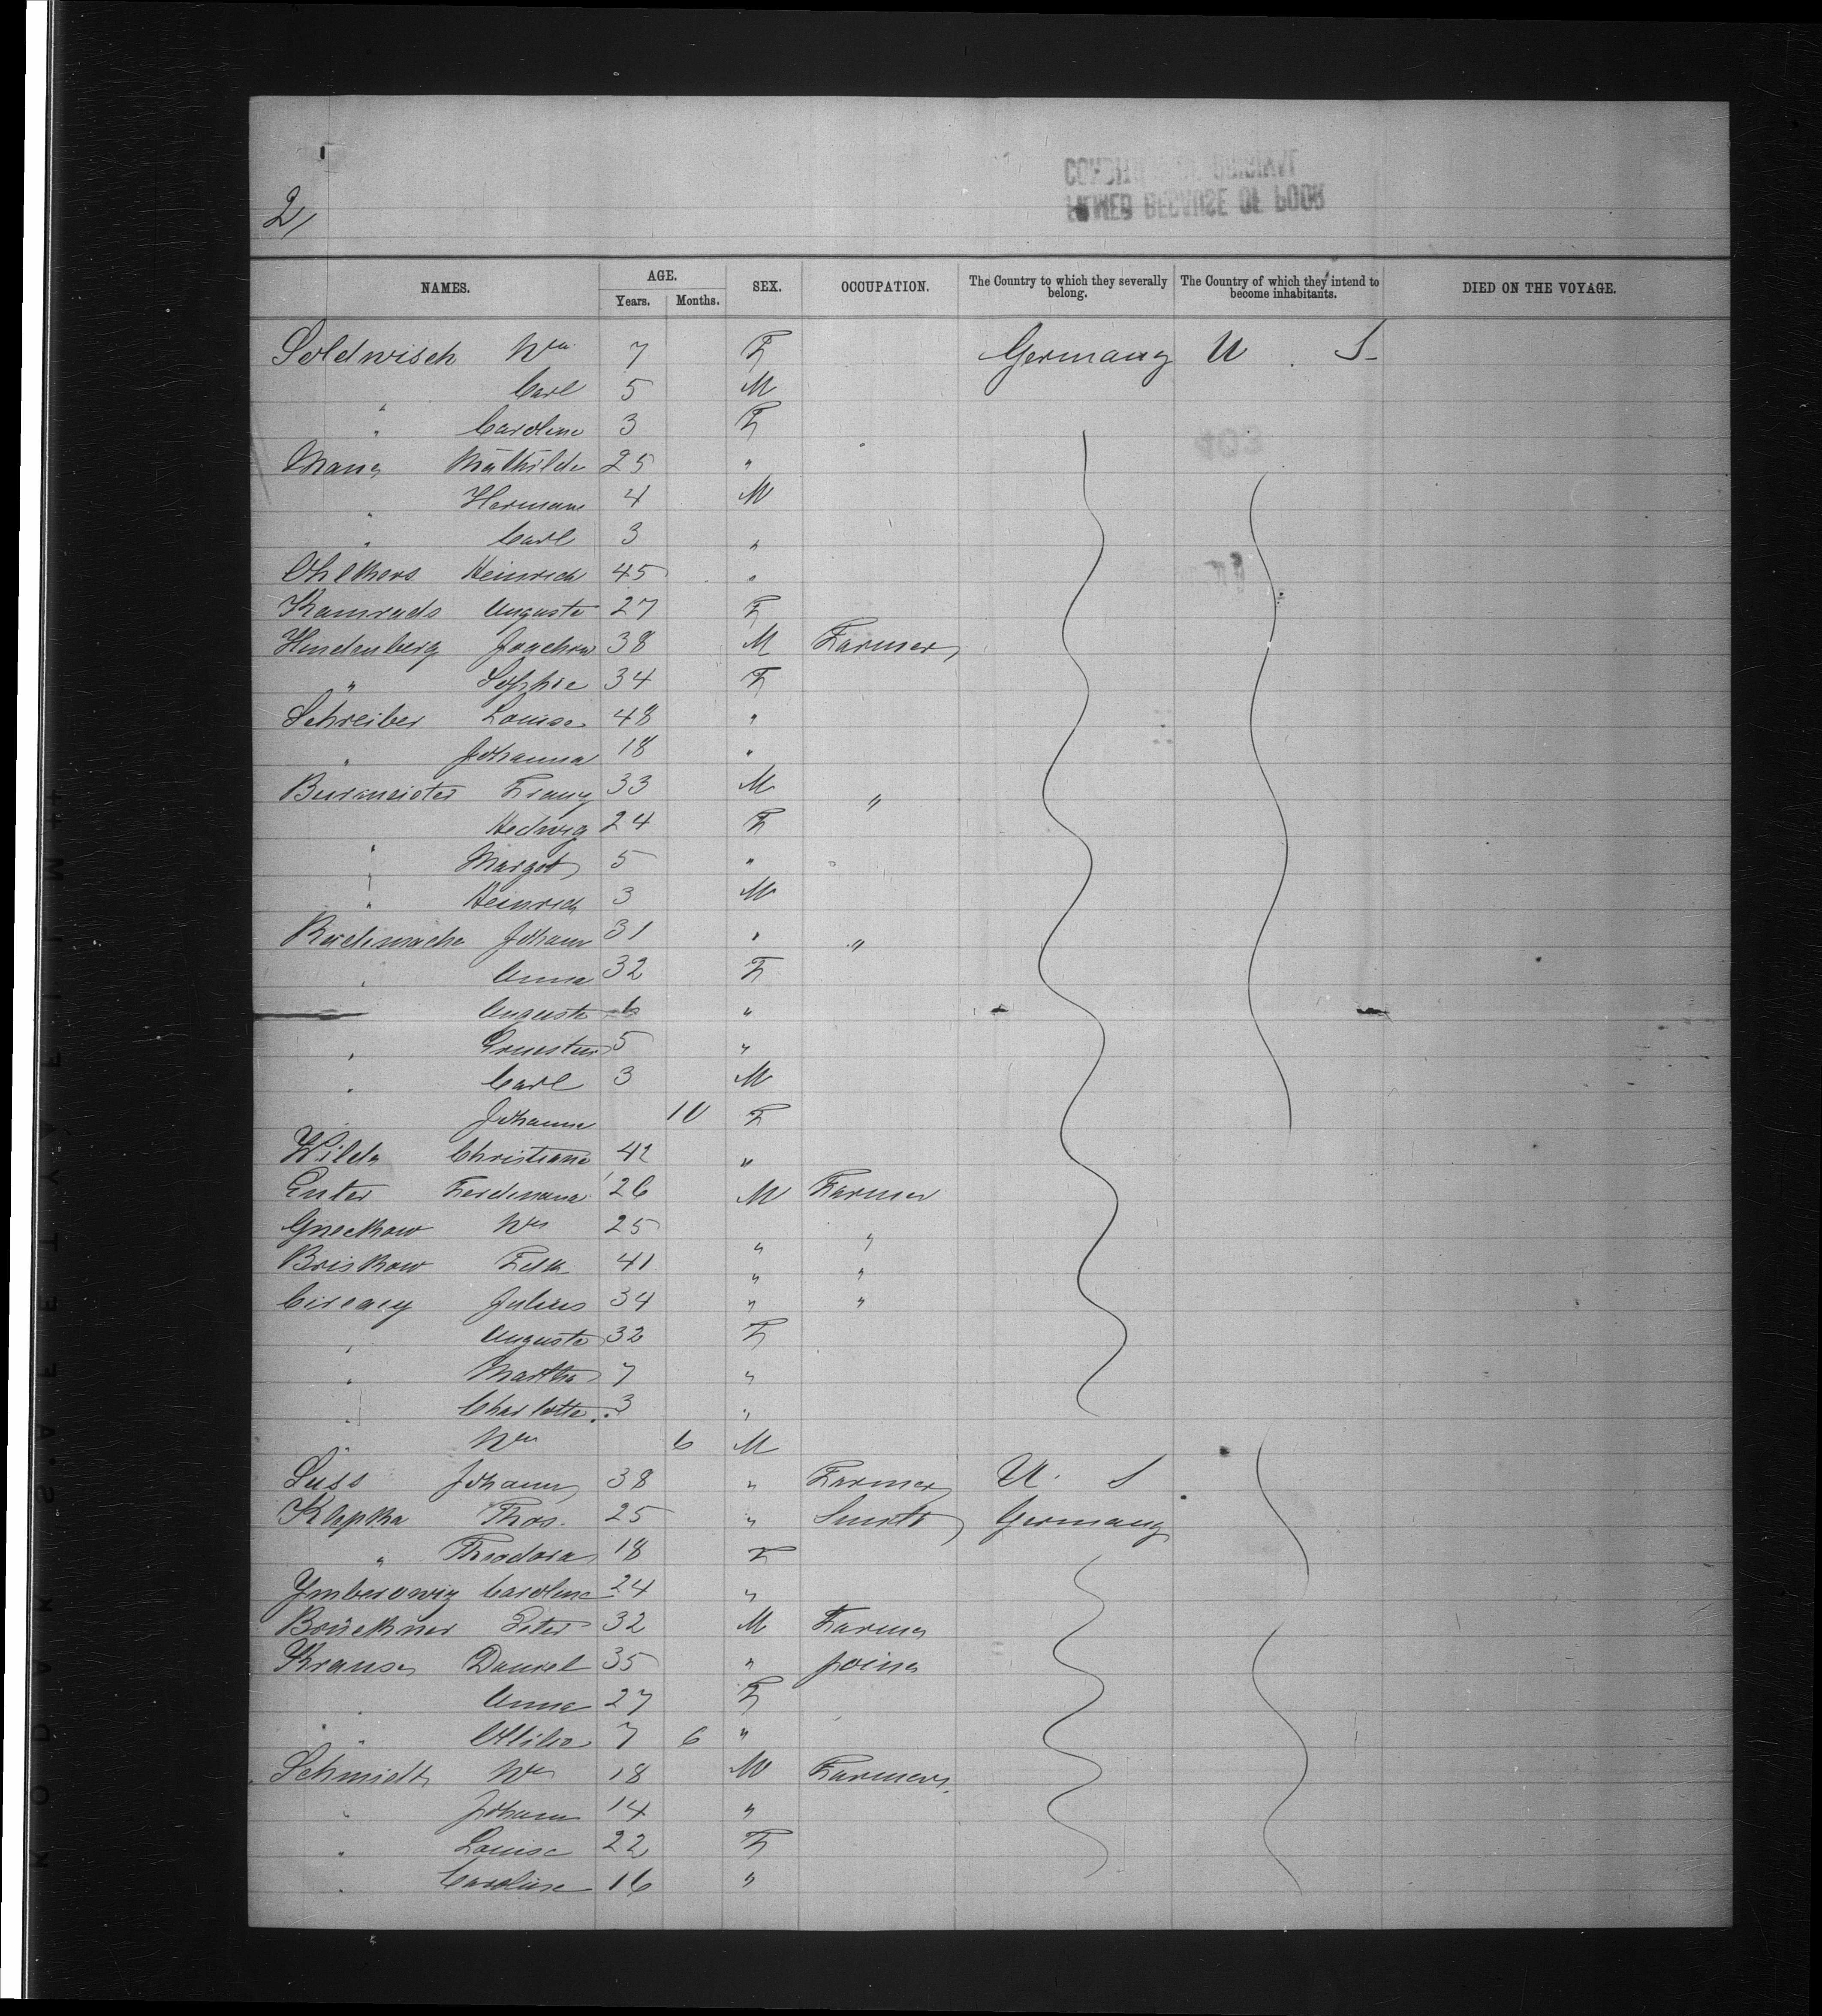 2/
NAMES. AGE. Years. Months. SEX. OCCUPATION. The Country to which they severally belong. The Country of which they intend to become inhabitants. DIED ON THE VOYAGE.
Soldwisch Wm 7 F Germany U. S.
" Carl 5 M
" Caroline 3 F
Mathilde 25 "
" Hermann 4 M
" Carl 3 "
Ohlkers Heinrich 45 "
Kamrads Auguste 27 F
Hindenberg Joachim 38 M Farmer
" Sophie 34 F
Schreiber Louise 48 "
" Johanna 18 "
Burmeister Franz 33 M "
" Hedwig 24 F
" Margot 5 "
" Heinrich 3 M
Johann 31 " "
" Anna 32 F
Auguste 6 "
" Ernestine 5 "
" Carl 3 M
" Johanna 10 F
Wilde Christiane 42 "
Enter Ferdinand 26 M Farmer
Gneckow Wm 25 " "
Briskow Fdk 41 " "
Julius 34 " "
" Auguste 32 F
" Martha 7 "
" Charlotte 3 "
" Wm 6 M
Suss Johann 38 " Farmer U. S
Klapka Thos. 25 " Smith Germany
" Theodora 18 F
Caroline 24 "
Brückner Peter 32 M Farmer
Krause Daniel 35 " joiner
" Anna 27 F
" Ottilie 7 6 "
Schmidt Wm 18 M Farmers
" Johann 14 "
" Louise 22 F
" Caroline 16 "